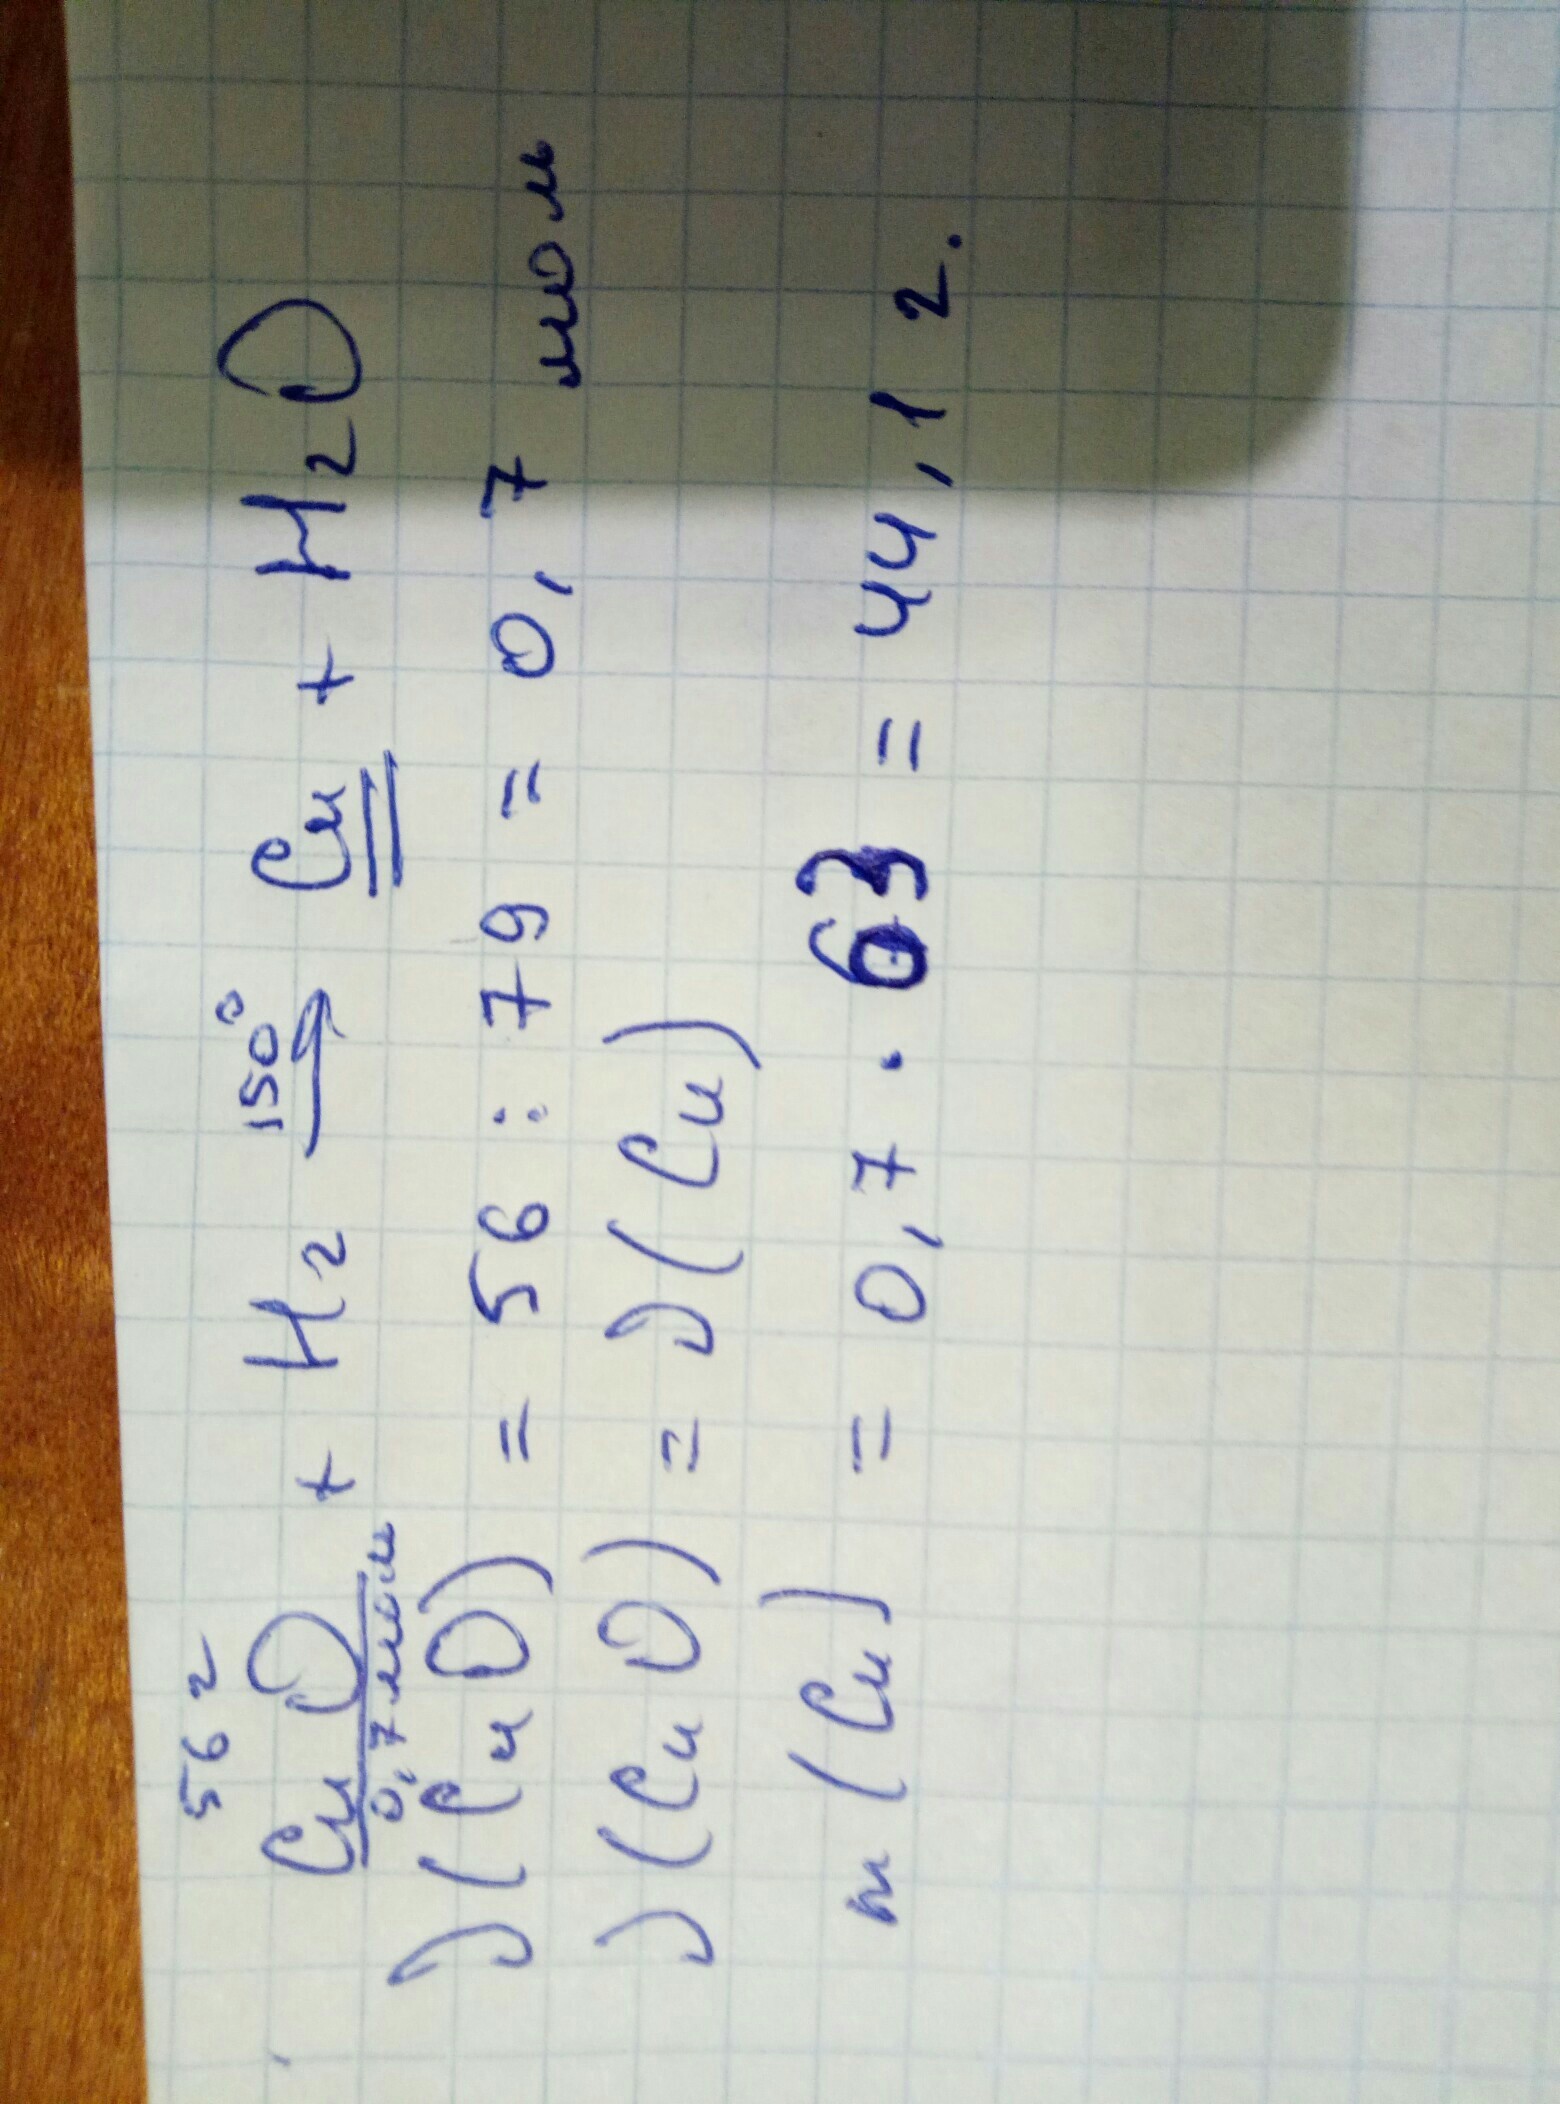 56 г
150°
CuO + H2 → Cu + H2O
0,7 моль
ν(CuO) = 56 : 79 = 0,7 моль
ν(CuO) = ν(Cu)
m(Cu) = 0,7 · 63 = 44,1 г.